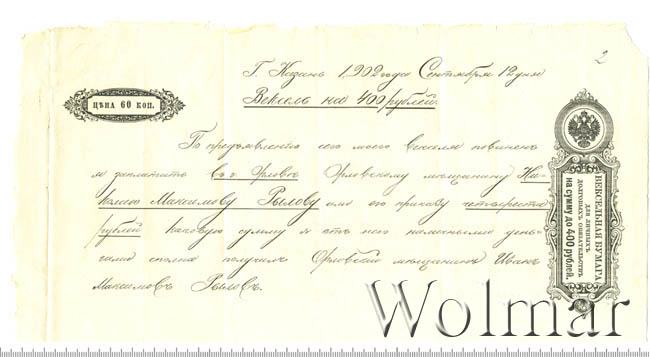 2
Г. Казань 1902 года Сентября 12 дня
Вексель на 400 рублей.
ЦѢНА 60 КОП.
По предъявленію сего моего векселя повиненъ
я заплатить въ г. Орловѣ Орловскому мѣщанину Ни-
колаю Максимову Рылову или его приказу четыреста
рублей каковую сумму я отъ него наличными день-
гами сполна получилъ Орловскій мѣщанинъ Иванъ
Максимовъ Рыловъ.
ВЕКСЕЛЬНАЯ БУМАГА
ДЛЯ ЛИЧНЫХЪ
ДОЛГОВЫХЪ ОБЯЗАТЕЛЬСТВЪ
НА СУММУ ДО 400 РУБЛЕЙ.
Wolmar